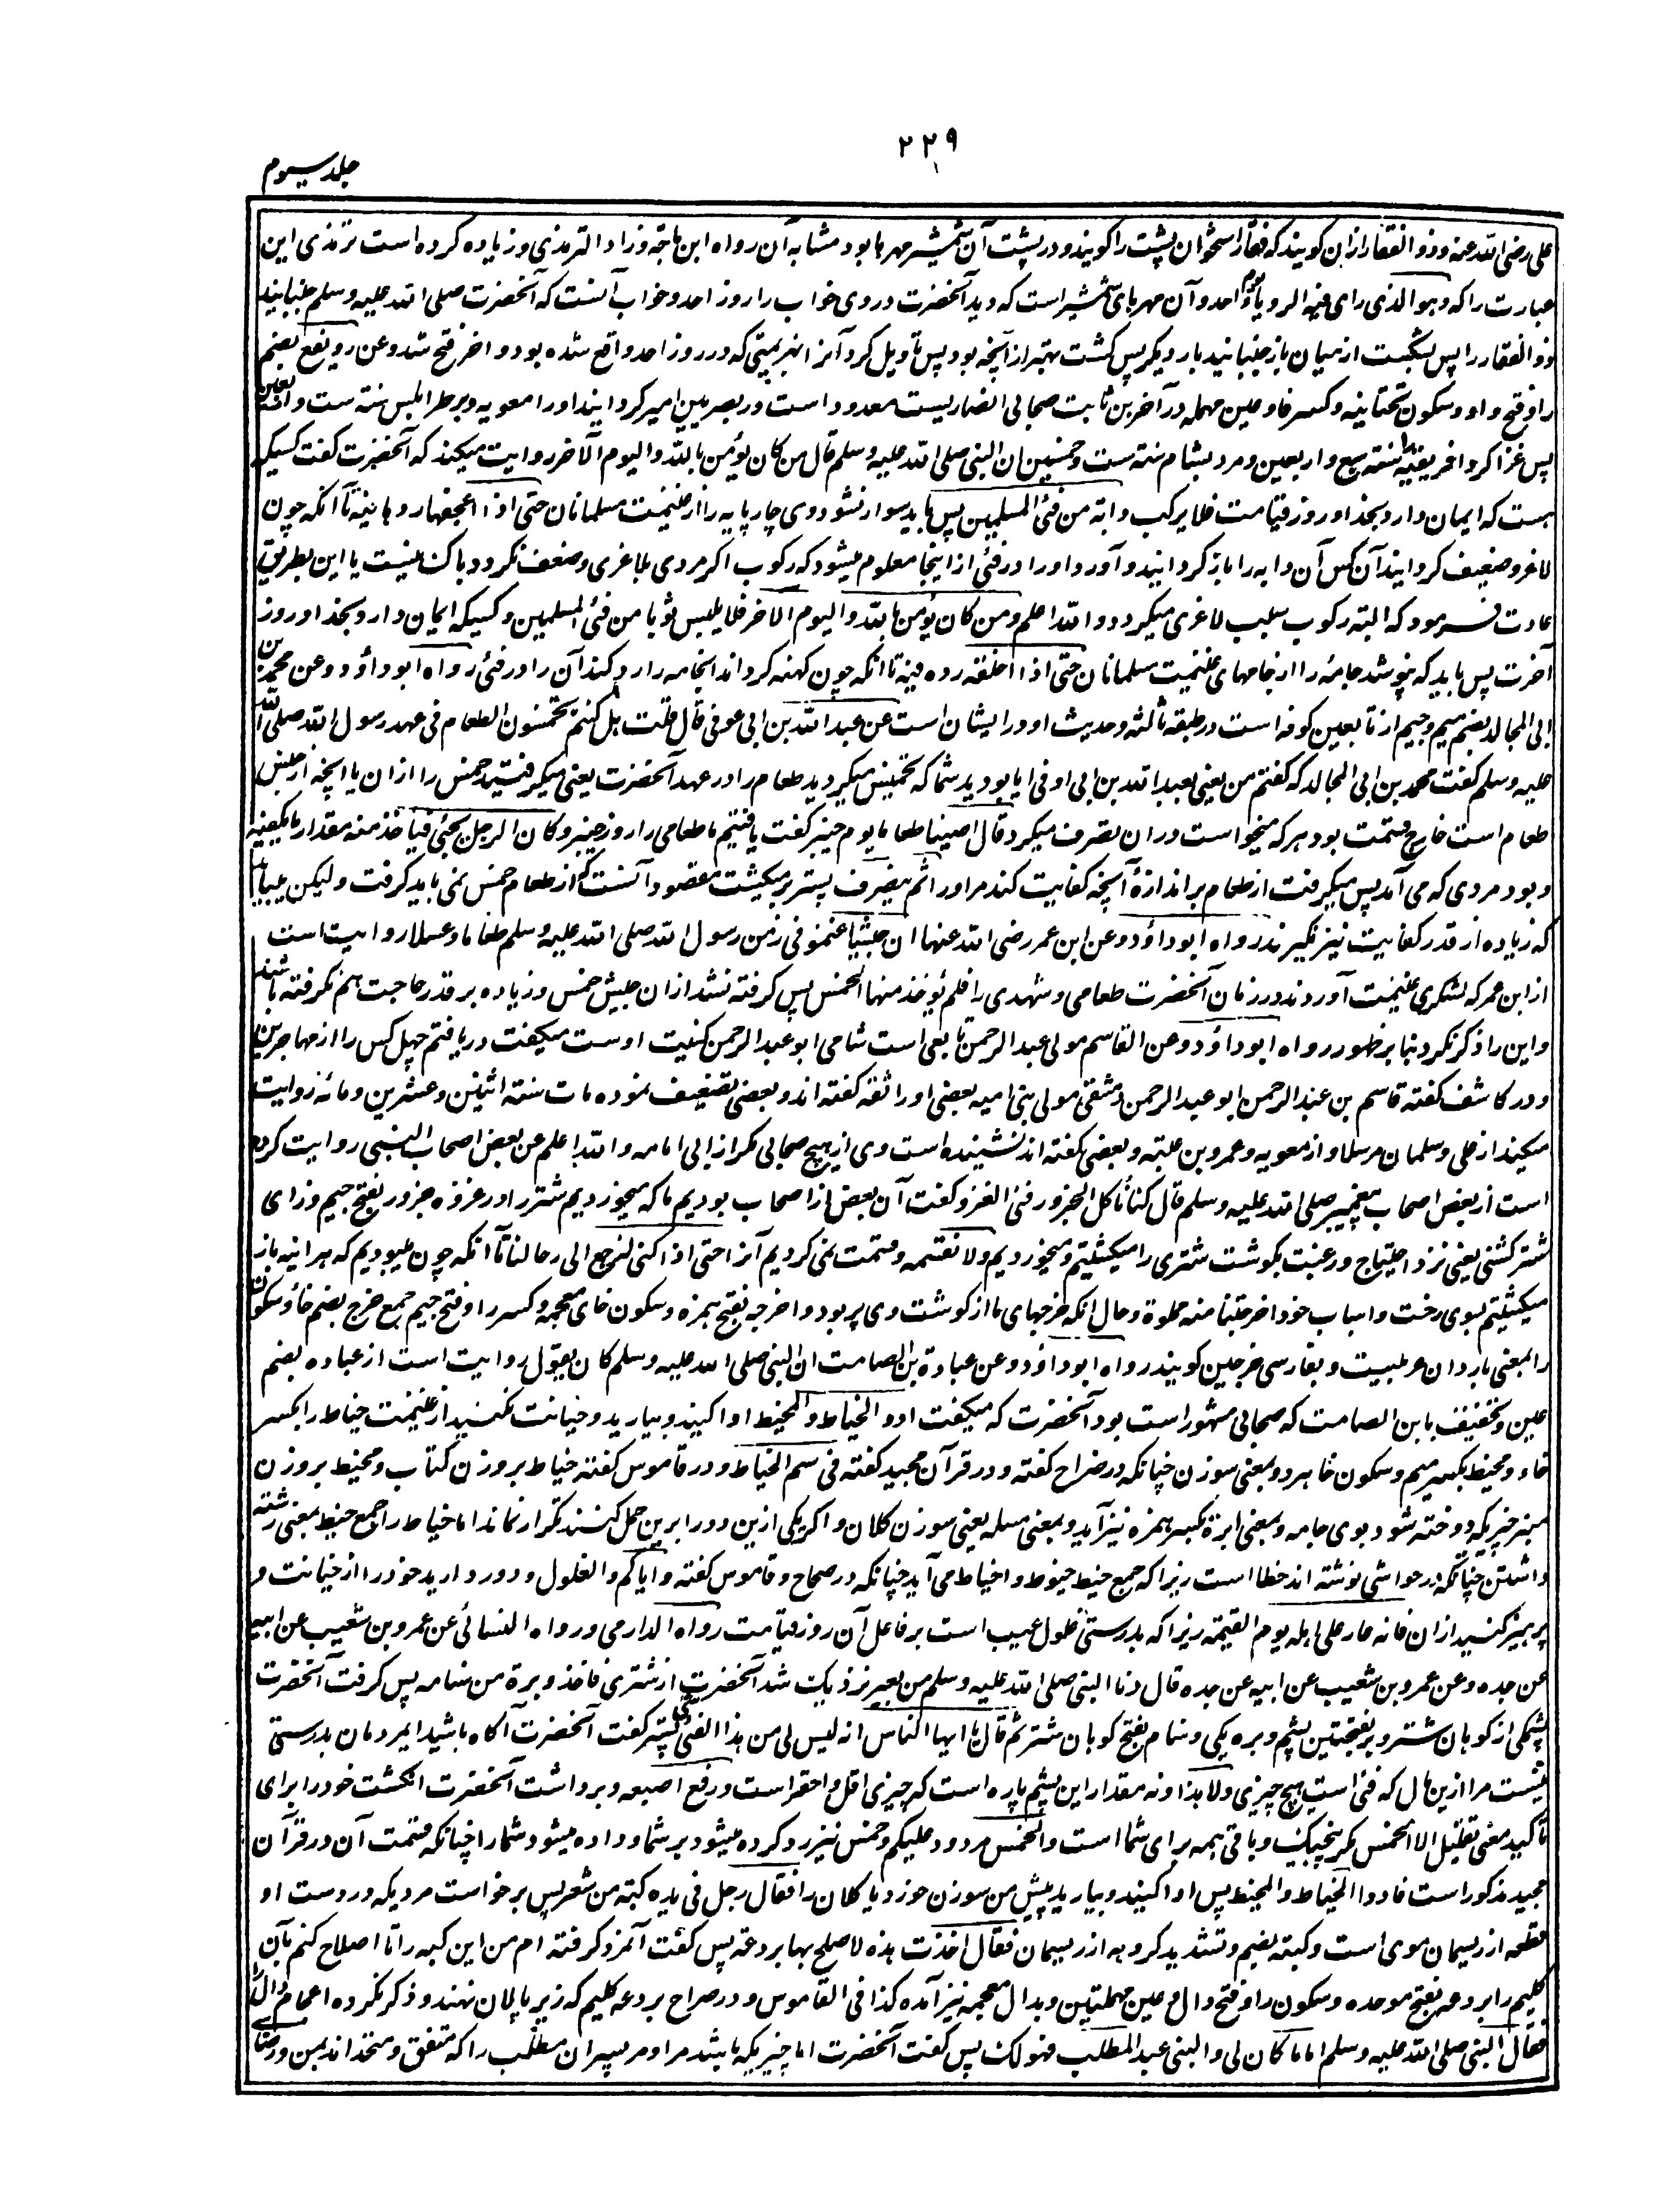 ۲۲۹
جلد سیوم
علی رضی الله عنه و ذو الفقار ازان کویند که فقار استخوان پشت را کویند و در پشت آن شمشیر مهرها بود مشابه آن رواه ابن ماجة وزاد الترمذی و زیاده کرده است ترمذی این
عبارت را که وهو الذی رای فیه الرویا یوم احد و آن مهرهای شمشیر است که دید آنحضرت در وی خواب را روز احد و خواب آنست که آنحضرت صلی الله علیه وسلم جنبانید
ذو الفقار را پس بشکست از میان باز جنبانید بار دیکر پس کشت بهتر از آنچه بود پس تأویل کرد آنرا بهزیمتی که در روز احد واقع شده بود و اخر فتح شد وعن رویفع بضم
را و فتح واو و سکون تحتانیه و کسر فا و عین مهمله در آخر بن ثابت صحابی انصاریست معدود است در بصریین امیر کردانید او را معویه بر طرابلس سنه ست و اربعین
پس غزا کرد افریقیه سنه سبع و اربعین و مرد بشام سنه ست و خمسین ان النبی صلی الله علیه وسلم قال من کان یؤمن بالله والیوم الآخر روایت میکند که آنحضرت کفت کسیکه
هست که ایمان دارد بخدا و روز قیامت فلا یرکب دابة من فئ المسلمین پس باید سوار نشود وی چارپایه را از غنیمت مسلمانان حتی اذا اعجفها ردها فیه تا آنکه چون
لاغر و ضعیف کردانید آن کس آن دابه را باز کردانید و آورد او را در فئ از اینجا معلوم میشود که رکوب اکر مردی بلاغری و ضعف نکردد باک نیست یا این بطریق
عادت فرمود که البته رکوب سبب لاغری میکردد و الله اعلم ومن کان یؤمن بالله والیوم الاخر فلا یلبس ثوبا من فئ المسلمین و کسیکه ایمان دارد بخدا و روز
آخرت پس باید که نپوشد جامهٔ را از جامهای غنیمت مسلمانان حتی اذا اخلقه رده فیه تا آنکه چون کهنه کرداند انجامه را رد کند آن را در فئ رواه ابوداؤد وعن محمد بن
ابی المجالد بضم میم و جیم از تابعین کوفه است در طبقه ثالثه و حدیث او در ایشان است عن عبد الله بن ابی اوفی قال قلت هل کنتم تخمسون الطعام فی عهد رسول الله صلی الله
علیه وسلم کفت محمد بن ابی المجالد که کفتم من یعنی بعبد الله بن ابی اوفی ایا بودید شما که تخمیس میکردید طعام را در عهد آنحضرت یعنی میکرفتید خمس را ازان یا آنچه از جنس
طعام است خارج قسمت بود هر که میخواست دران تصرف میکرد قال اصبنا طعاما یوم خیبر کفت یافتیم ما طعامی را روز خیبر وکان الرجل یجئ فیاخذ منه مقدار ما یکفیه
و بود مردی که می آمد پس میکرفت از طعام بر اندازهٔ آنچه کفایت کند مر اورا ثم ینصرف پستر برمیکشت مقصود آنست که از طعام خمس نمی باید کرفت ولیکن میباید
که زیاده از قدر کفایت نیز نکیرند رواه ابوداؤد وعن ابن عمر رضی الله عنهما ان جیشا غنموا فی زمن رسول الله صلی الله علیه وسلم طعاما وعسلا روایت است
از ابن عمر که لشکری غنیمت آوردند در زمان آنحضرت طعامی و شهدی را فلم یؤخذ منها الخمس پس کرفته نشد ازان جیش خمس و زیاده بر قدر حاجت هم نکرفته باشند
و این را ذکر نکرد بنابر ظهور رواه ابوداؤد وعن القاسم مولی عبد الرحمن تابعی است شامی ابو عبد الرحمن کنیت اوست میکفت دریافتم چهل کس را از مهاجرین
و در کاشف کفته قاسم بن عبد الرحمن ابو عبد الرحمن دمشقی مولی بنی امیه بعضی او را ثقه کفته اند و بعضی تضعیف نموده مات سنة اثنین وعشرین ومائة روایت
میکند از علی و سلمان مرسلا و از معویه و عمرو بن عتبه و بعضی کفته اند نشنیده است وی از هیچ صحابی مکر از ابی امامه والله اعلم عن بعض اصحاب النبی روایت کرده
است از بعض اصحاب پیغمبر صلی الله علیه وسلم قال کنا نأکل الجزور فی الغزو کفت آن بعض از اصحاب بودیم ما که میخوردیم شتر را در غزوه جزور بفتح جیم و زای
شتر کشتنی یعنی نزد احتیاج و رغبت بکوشت شتری را میکشتیم و میخوردیم ولا نقسمه و قسمت نمی کردیم آنرا حتی اذا کنا لنرجع الی رحالنا تا آنکه چون میبودیم که هر اینه باز
میکشتیم بسوی رخت و اسباب خود اخرجتنا منه مملوة و حال آنکه خرجهای ما از کوشت وی پر بود و اخرجه بفتح همزه و سکون خای معجمه و کسر را و فتح جیم جمع خرج بضم خاؤ سکون
را بمعنی باردان عربیست و بفارسی خرجین کویند رواه ابوداؤد وعن عبادة بن الصامت ان النبی صلی الله علیه وسلم کان یقول روایت است از عباده بضم
عین و تخفیف با بن الصامت که صحابی مشهور است بود آنحضرت که میکفت ادوا الخیاط والمخیط ادا کنید و بیارید و خیانت نکنید از غنیمت خیاط را بکسر
خاء و مخیط بکسر میم و سکون خا هر دو بمعنی سوزن چنانکه در صراح کفته و در قرآن مجید کفته فی سم الخیاط و در قاموس کفته خیاط بروزن کتاب و مخیط بروزن
منبر چیزیکه دوخته شود بوی جامه و بمعنی ابرة بکسر همزه نیز آید و بمعنی مسله یعنی سوزن کلان و اکر یکی ازین دو را برین حمل کنند تکرار نماند اما خیاط را جمع خیط بمعنی رشته
داشتن چنانکه در حواشی نوشته اند خطا است زیرا که جمع خیط خیوط و اخیاط می آید چنانکه در صحاح و قاموس کفته وایاکم والغلول و دور دارید خود را از خیانت و
پرهیز کنید ازان فانه عار علی اهله یوم القیمة زیرا که بدرستی غلول عیب است بر فاعل آن روز قیامت رواه الدارمی ورواه النسائی عن عمرو بن شعیب عن ابیه
عن جده وعن عمرو بن شعیب عن ابیه عن جده قال دنا النبی صلی الله علیه وسلم من بعیر نزدیک شد آنحضرت از شتری فاخذ وبرة من سنامه پس کرفت آنحضرت
پشمکی از کوهان شتر و بر بفتحتین پشم و بره یکی و سنام بفتح کوهان شتر ثم قال یا ایها الناس انه لیس لی من هذا الفئ شئ پستر کفت آنحضرت آکاه باشید ایمردمان بدرستی
نیست مرا ازین مال که فئ است هیچ چیزی ولا هذا و نه مقدار این پشم پاره است که چیزی اقل و احقر است ورفع اصبعه و برداشت آنحضرت انکشت خود را برای
تأکید معنی تقلیل الا الخمس مکر پنجیک و باقی همه برای شما است والخمس مردود علیکم و خمس نیز رد کرده میشود بر شما و داده میشود شما را چنانکه قسمت آن در قرآن
مجید مذکور است فادوا الخیاط والمخیط پس ادا کنید و بیارید پیش من سوزن خورد یا کلان را فقام رجل فی یده کبة من شعر پس برخواست مردیکه در دست او
قطعه از ریسمان موی است و کبة بضم و تشدید کروهه از ریسمان فقال اخذت هذه لاصلح بها بردعة پس کفت آنمرد کرفته ام من این کبه را تا اصلاح کنم بآن
کلیم را بردعه بفتح موحده و سکون را و فتح دال و عین مهملتین و بدال معجمه نیز آمده کذا فی القاموس و در صراح بردعه کلیم که زیر پالان نهند و ذکر نکرده اعجام دال را
فقال النبی صلی الله علیه وسلم اما ما کان لی ولبنی عبد المطلب فهو لک پس کفت آنحضرت اما چیزیکه باشد مرا و مر پسران مطلب را که متفق و متحد اند بمن و رضای